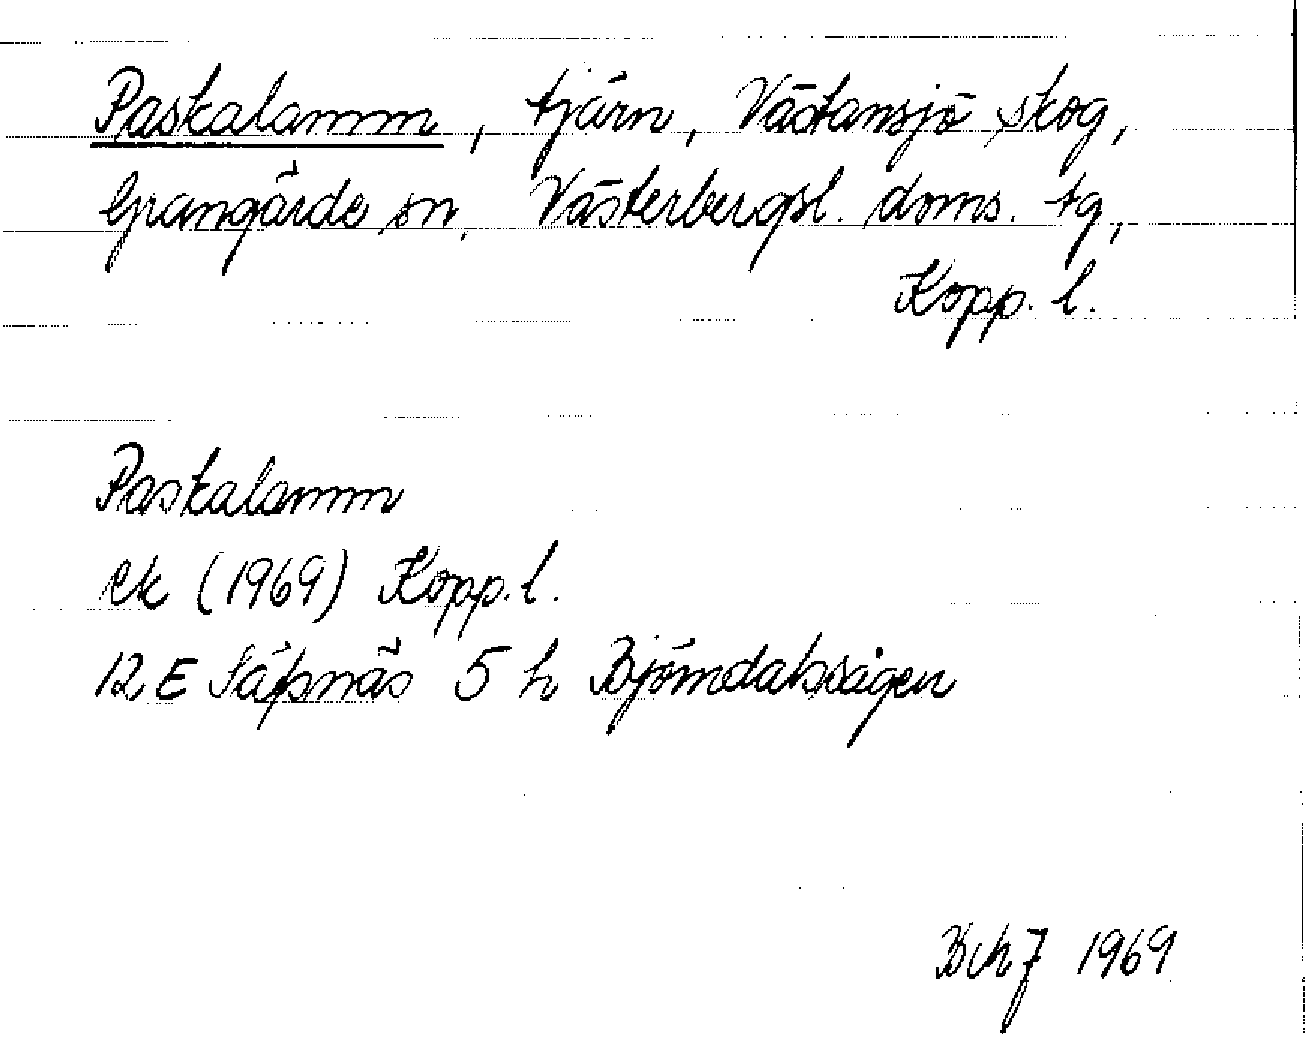 Paskalamm, tjärn, Västansjö skog,
Grangärde sn, Västerbergsl. doms. tg,
Kopp. l.
Paskalamm
ek (1969) Kopp. l.
12 E Säfsnäs 5 h Björndalssågen
1969